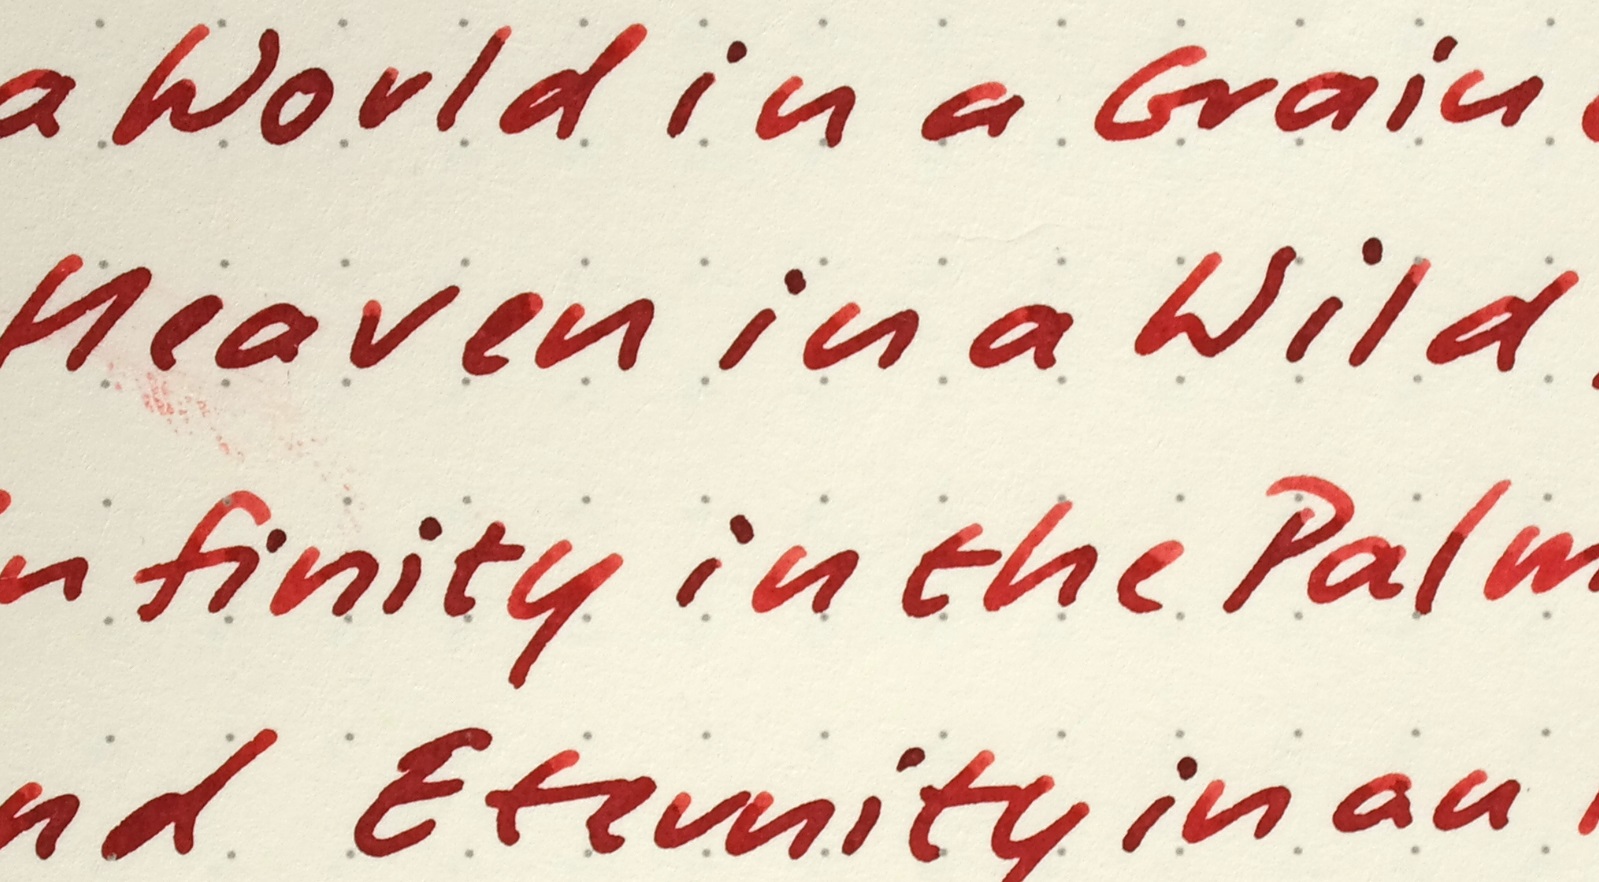 a World in a Grain
Heaven in a Wild
Infinity in the Palm
nd Eternity in an